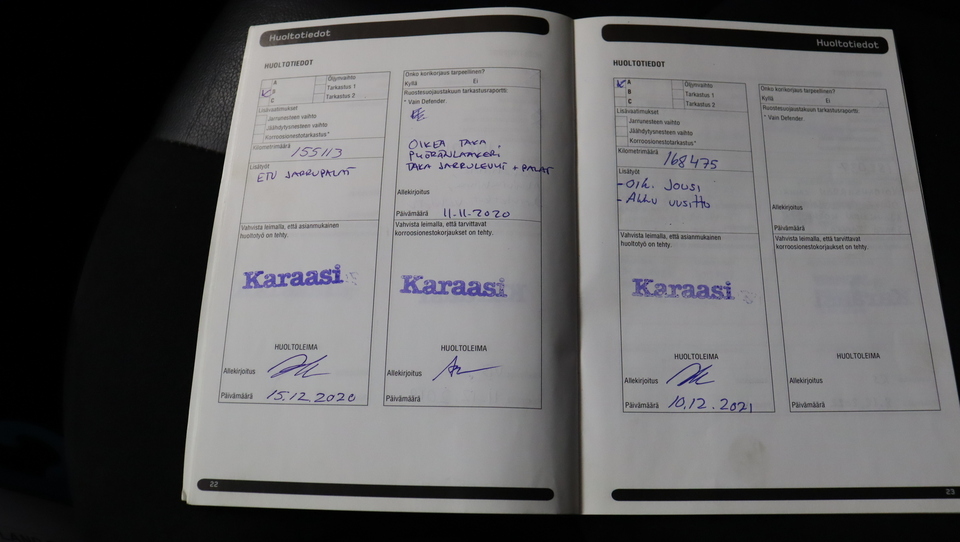 Huoltotiedot
HUOLTOTIEDOT
A
B
C
Öljynvaihto
Tarkastus 1
Tarkastus 2
Lisävaatimukset
Jarrunesteen vaihto
Jäähdytysnesteen vaihto
Korroosionestotarkastus*
Kilometrimäärä 155113
Lisätyöt
ETU JARRUPALAT
Vahvista leimalla, että asianmukainen
huoltotyö on tehty.
Karaasi
HUOLTOLEIMA
Allekirjoitus
Päivämäärä 15.12.2020
Onko korikorjaus tarpeellinen?
Kyllä Ei
Ruostesuojaustakuun tarkastusraportti:
* Vain Defender.
OIKEA TAKA
PYÖRÄNLAAKERI
TAKA JARRULEVYT + PALAT
Allekirjoitus
Päivämäärä 11.11.2020
Vahvista leimalla, että tarvittavat
korroosionestokorjaukset on tehty.
Karaasi
HUOLTOLEIMA
Allekirjoitus
Päivämäärä
22
Huoltotiedot
HUOLTOTIEDOT
A
B
C
Öljynvaihto
Tarkastus 1
Tarkastus 2
Lisävaatimukset
Jarrunesteen vaihto
Jäähdytysnesteen vaihto
Korroosionestotarkastus*
Kilometrimäärä 168475
Lisätyöt
- Oik. Jousi
- Akku uusittu
Vahvista leimalla, että asianmukainen
huoltotyö on tehty.
Karaasi
HUOLTOLEIMA
Allekirjoitus
Päivämäärä 10.12.2021
Onko korikorjaus tarpeellinen?
Kyllä Ei
Ruostesuojaustakuun tarkastusraportti:
* Vain Defender.
Allekirjoitus
Päivämäärä
Vahvista leimalla, että tarvittavat
korroosionestokorjaukset on tehty.
HUOLTOLEIMA
Allekirjoitus
Päivämäärä
23